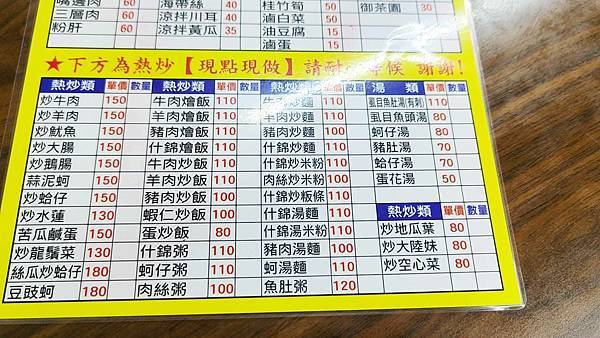 嘴邊肉 60 海帶絲 40 桂竹筍 50 御茶園 30
三層肉 60 涼拌川耳 40 滷白菜 50
粉肝 60 涼拌黃瓜 35 油豆腐 15
滷蛋 15
★下方為熱炒【現點現做】請耐 等候 謝謝!
熱炒類 單價 數量 單價 數量 單價 數量 湯 類 單價 數量
炒牛肉 150 牛肉燴飯 110 牛肉炒麵 110 虱目魚肚湯(有刺) 110
炒羊肉 150 羊肉燴飯 110 羊肉炒麵 110 虱目魚頭湯 80
炒魷魚 150 豬肉燴飯 100 豬肉炒麵 100 蚵仔湯 80
炒大腸 150 什錦燴飯 110 什錦炒麵 110 豬肚湯 70
炒鵝腸 150 牛肉炒飯 110 什錦炒米粉 100 蛤仔湯 70
蒜泥蚵 150 羊肉炒飯 110 肉絲炒米粉 100 蛋花湯 50
炒蛤仔 150 豬肉炒飯 100 什錦炒粄條 110
炒水蓮 130 蝦仁炒飯 100 什錦湯麵 110 熱炒類 單價 數量
苦瓜鹹蛋 150 蛋炒飯 80 什錦湯米粉 110 炒地瓜葉 80
炒龍鬚菜 130 什錦粥 110 豬肉湯麵 100 炒大陸妹 80
絲瓜炒蛤仔 180 蚵仔粥 110 蚵湯麵 100 炒空心菜 80
豆豉蚵 180 肉絲粥 100 魚肚粥 120